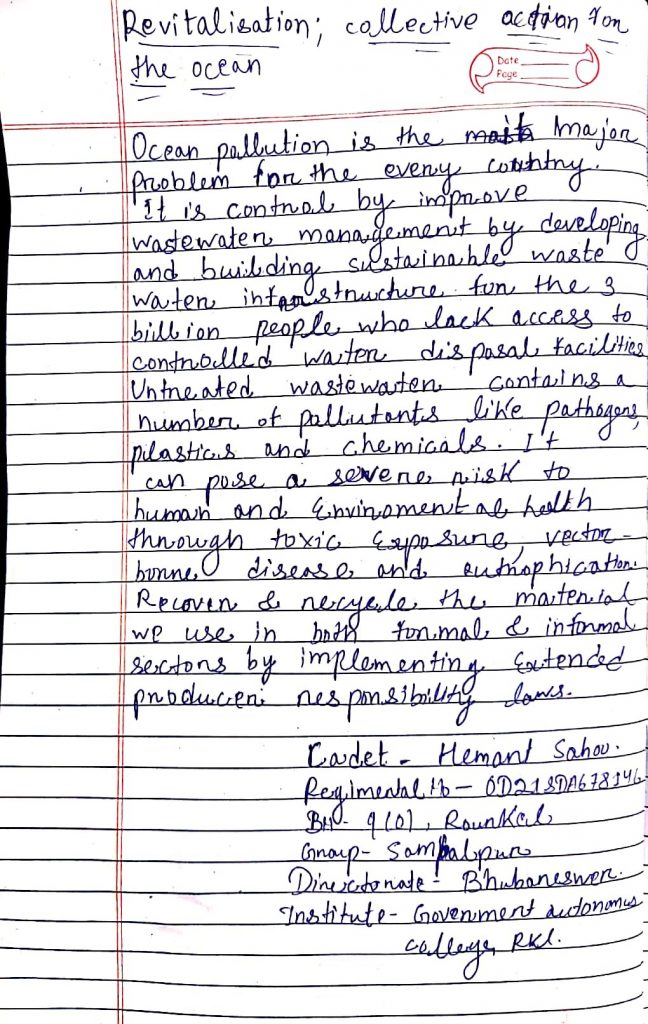 Revitalisation; collective action for
the ocean
Date
Page
Ocean pollution is the major
problem for the every country.
It is control by improve
wastewater management by developing
and building sustainable waste
water infarstructure for the 3
billion people who lack access to
controlled water disposal facilities
Untreated wastewater contains a
number of pollutants like pathogens,
plastics and chemicals. It
can pose a severe risk to
human and Enviromental health
through toxic exposure, vector-
borne disease and eutrophication.
Recover & recycle the material
we use in both formal & informal
sectors by implementing Extended
producer responsibility laws.
Cadet - Hemant Sahoo.
Regimental No - OD21SDA678146
BN - 9 (O), Rourkel
Group - Sambalpur
Directorate - Bhubaneswer.
Institute - Government autonomus
college, RKL.